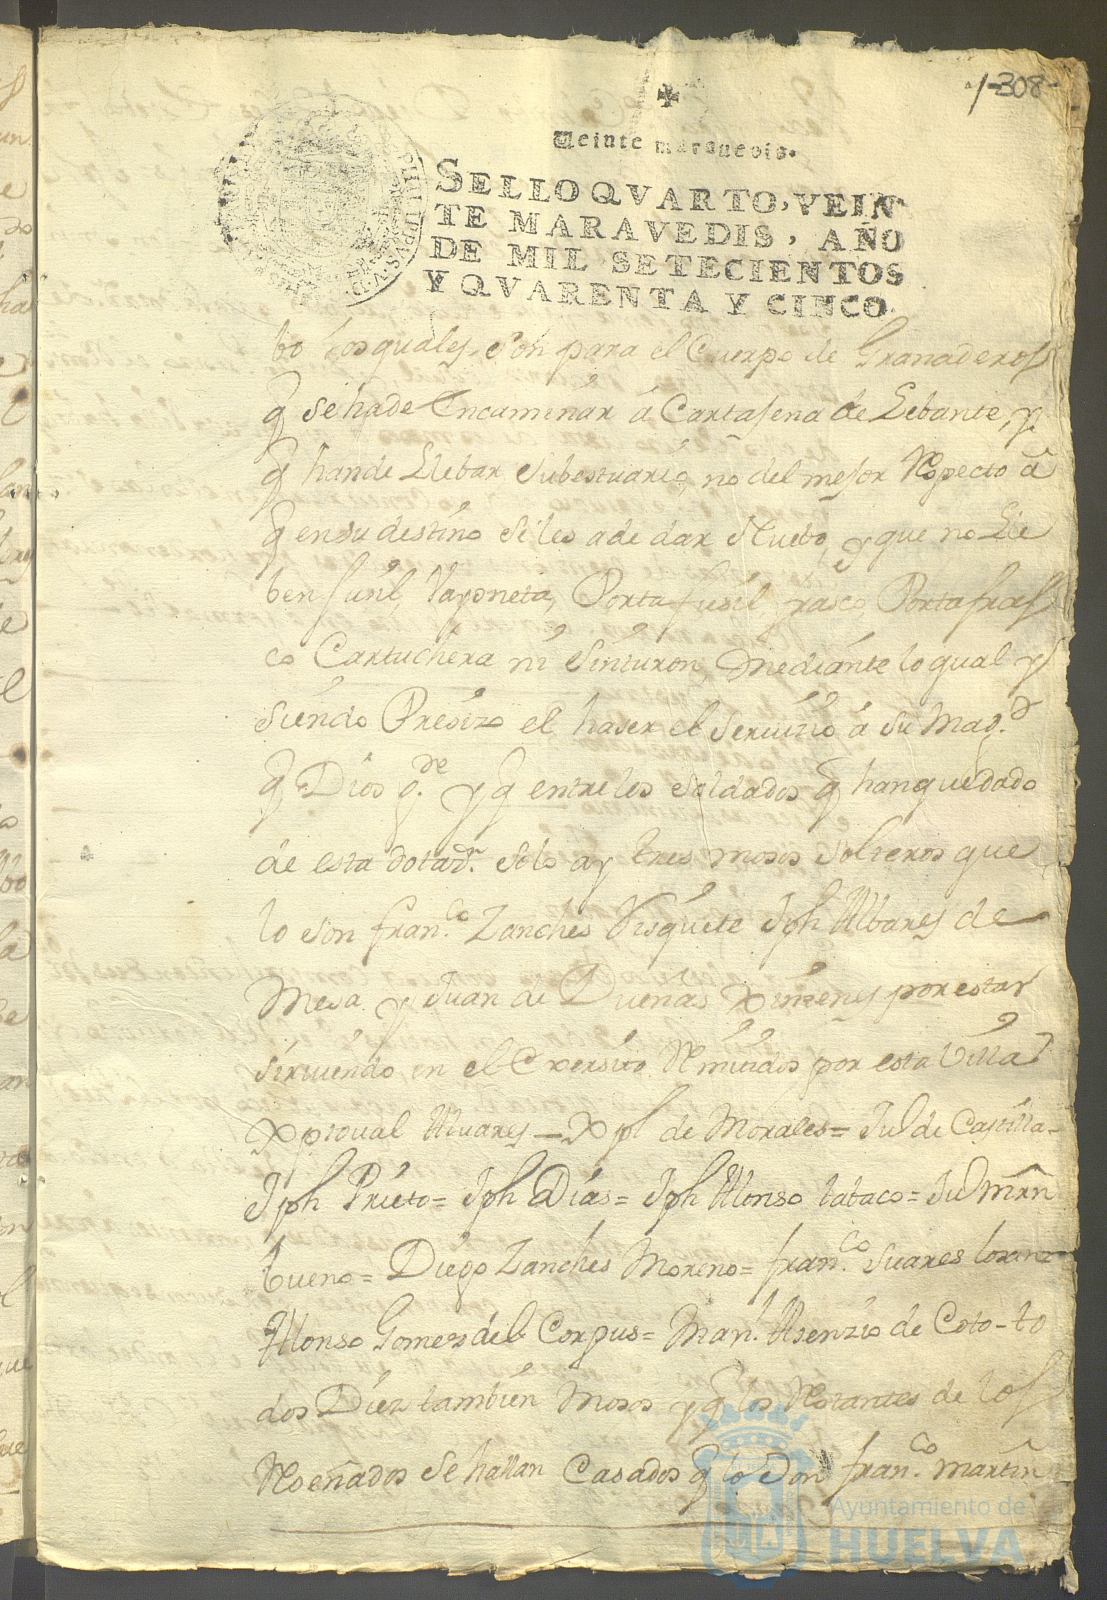 1-308-
Veinte maravedis.
SELLO QVARTO, VEIN
TE MARAVEDIS, AÑO
DE MIL SETECIENTOS
Y QVARENTA Y CINCO.
PHILIPPVS V D
bo los quales son para el Cuerpo de Granaderos
q se ha de Encaminar á Cartajena de Lebante, y
q han de Llebar su bestuario, no del mejor Respecto á
q en su destino se les a de dar Nuebo, y que no Lle
ben fusil, Vayoneta, Porta fusil, frasco, Porta fras
co Cartuchera ni Sinturon, Mediante lo qual y
siendo Presizo el haser el servizio á su Magd.
q Dios gde. y q entre los Soldados q han quedado
de esta dotazn. solo ay tres mosos solteros que
lo son franco. Zanches Visquete Jph Albares de
Mesa y Juan de Dueñas Ximenes por estar
sirviendo en el Exersito Remitidos por esta Villa
Xptoual Aluares - Xpl de Morales = Ju de Castilla -
Jph Prieto = Jph Dias = Jph Alonso tabaco = Ju Mrn
bueno = Diego Zanches Moreno = franco. Suares
Alonso Gomes del Corpus = Manl. Asenzio de Coto - to
dos Diez tambien Mosos y q los Restantes de los
Reseñados se hallan Casados q lo son franco. Martin
Ayuntamiento de
HUELVA